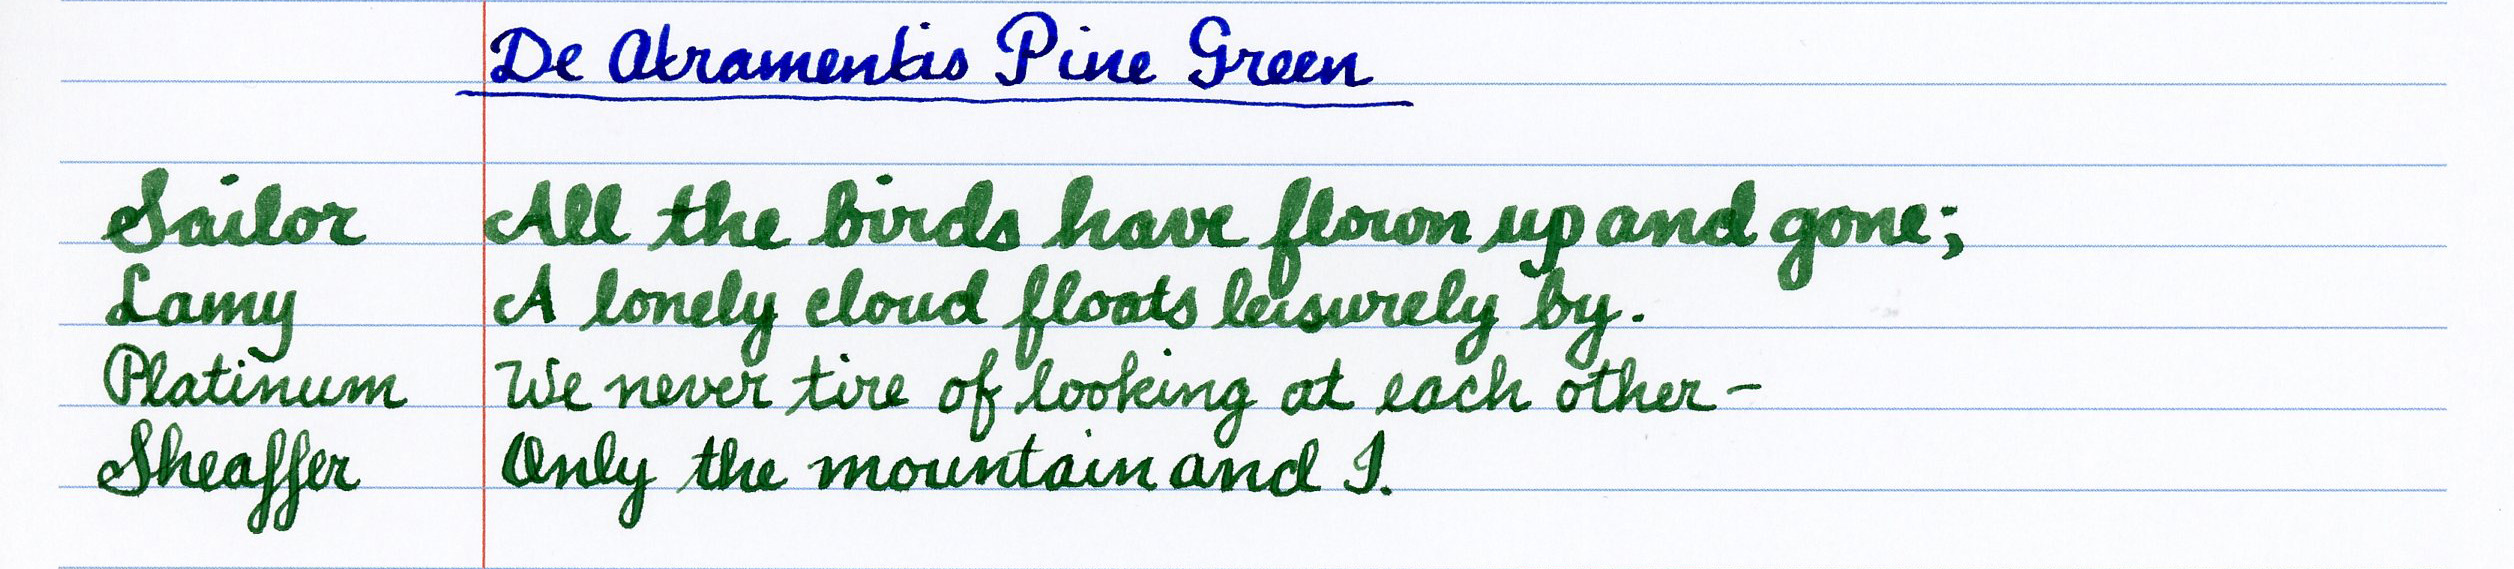 De Atramentis Pine Green
Sailor All the birds have flown up and gone;
Lamy A lonely cloud floats leisurely by.
Platinum We never tire of looking at each other-
Sheaffer Only the mountain and I.